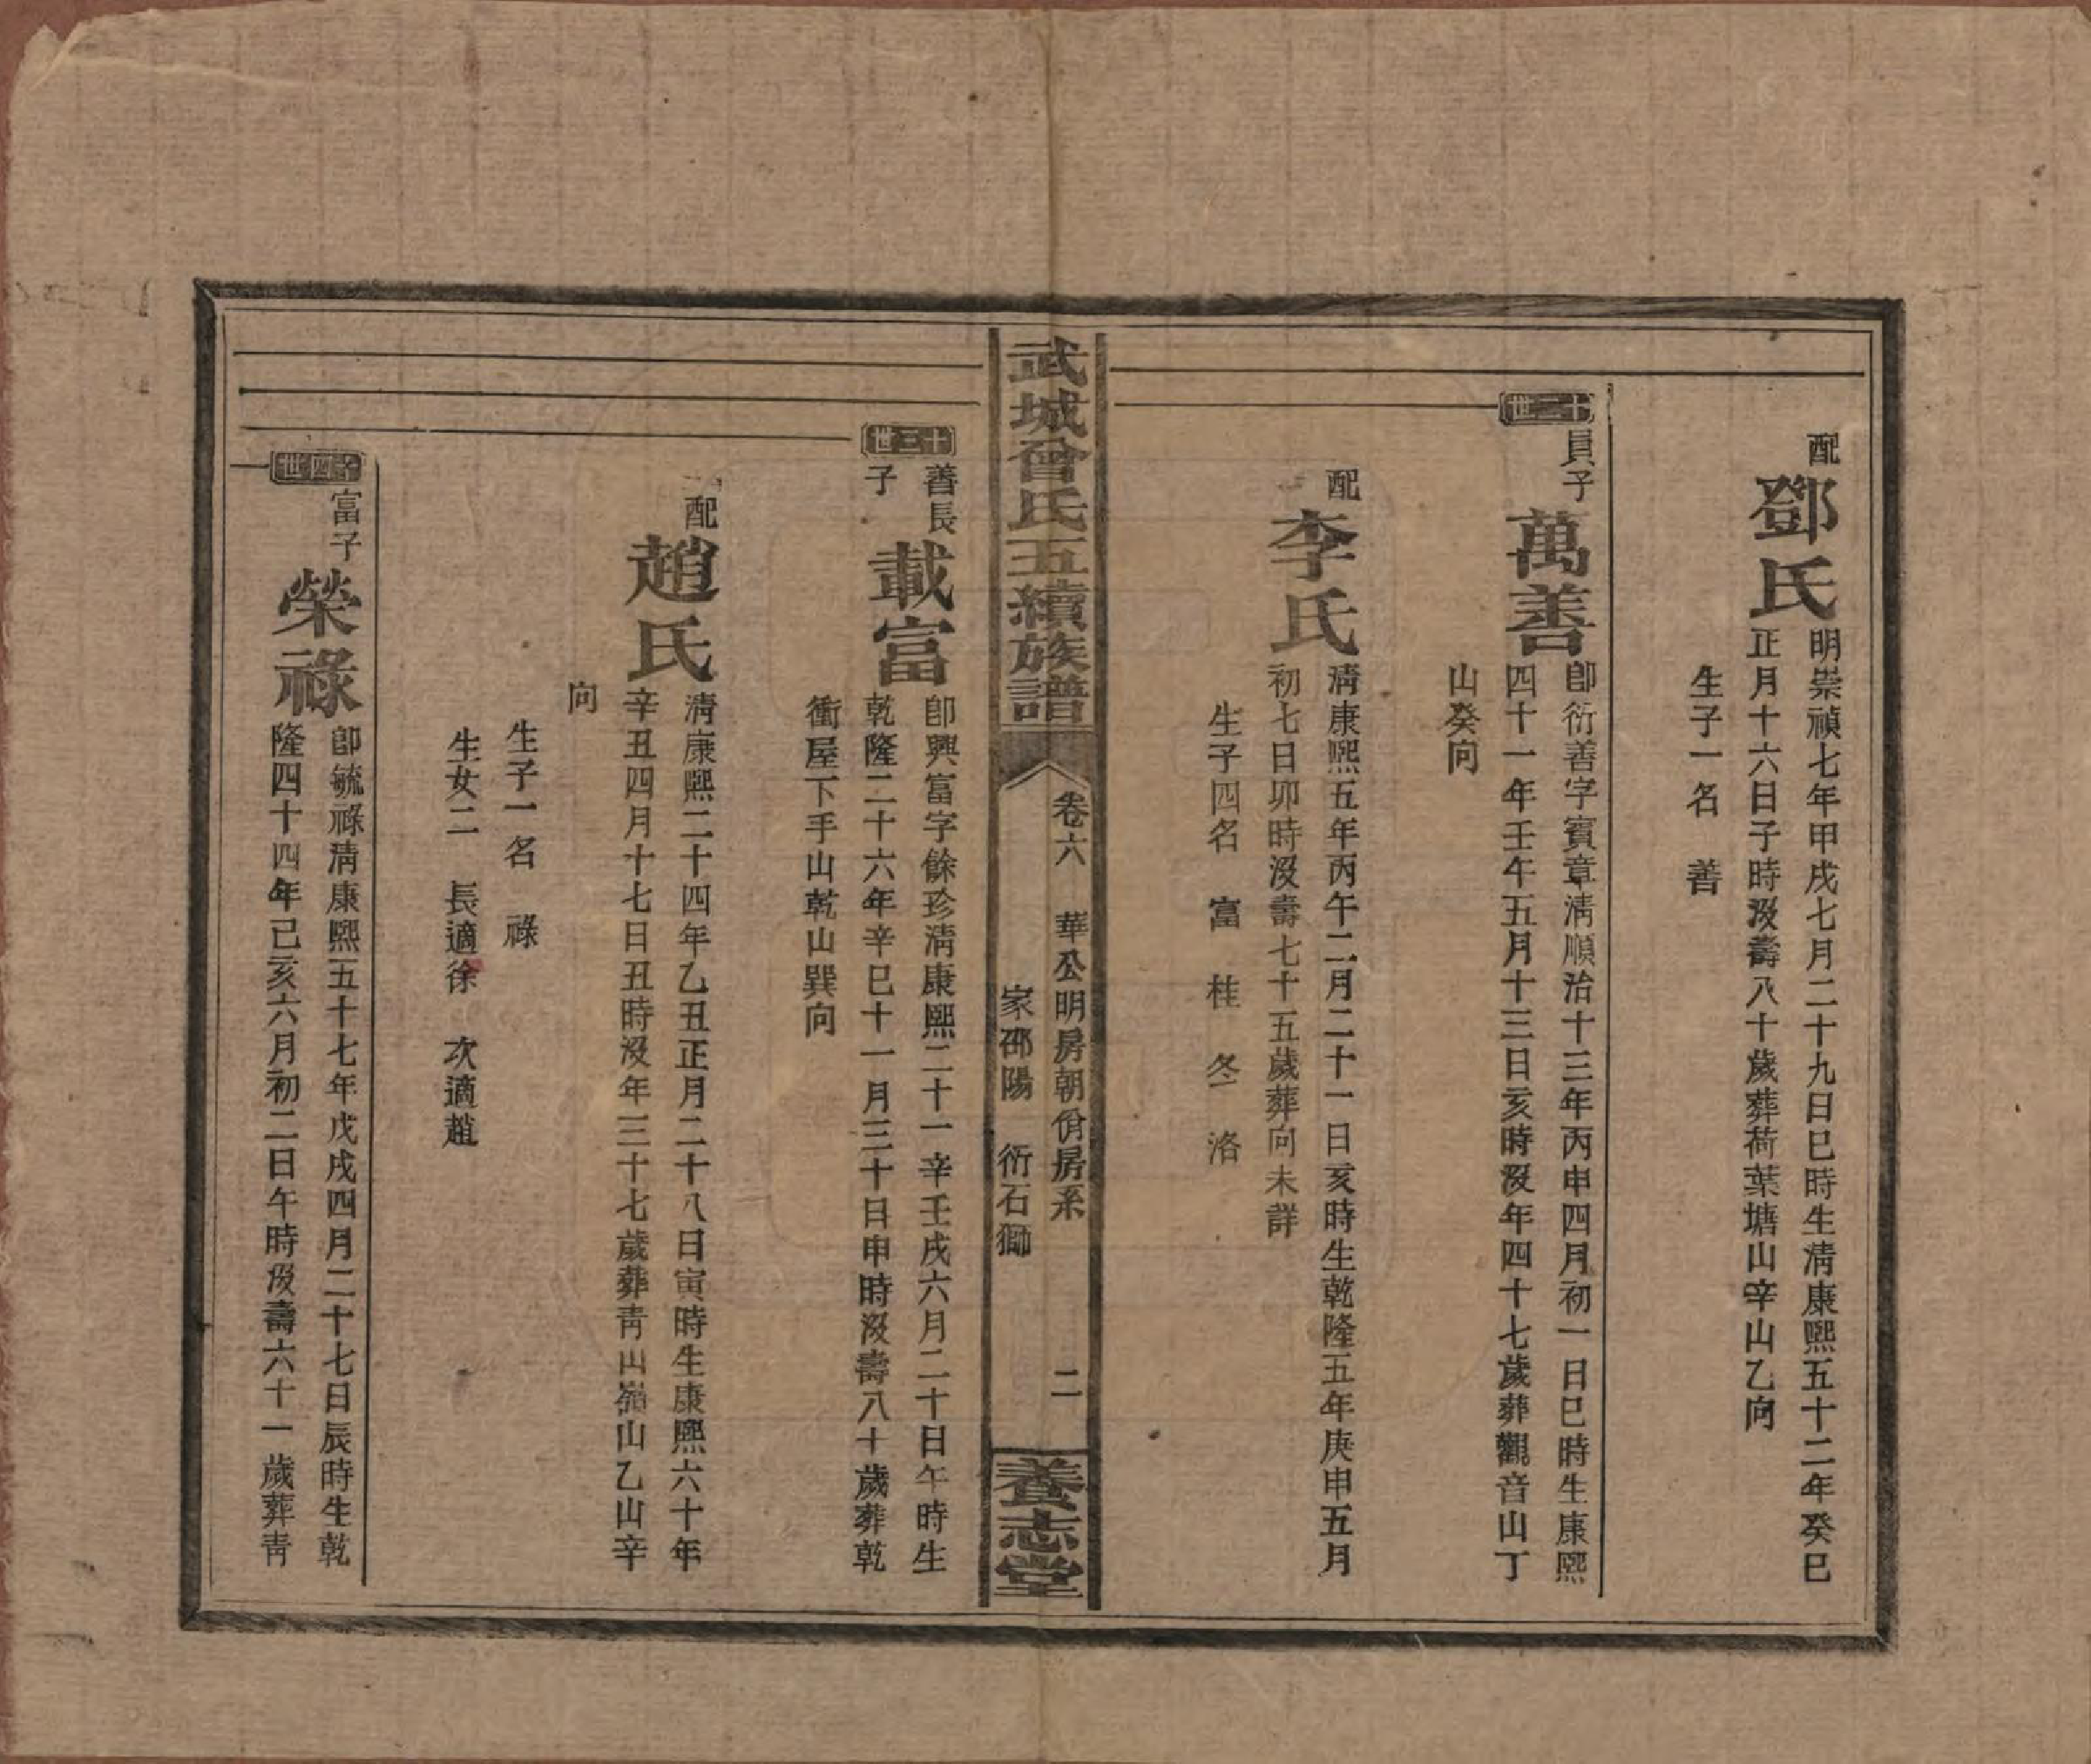 配
鄧氏
明崇禎七年甲戌七月二十九日巳時生清康熙五十二年癸巳
正月十六日子時沒壽八十歲葬荷葉塘山辛山乙向
生子一名　善
十二世
員子
萬善
卽衍善字賓章清順治十三年丙申四月初一日巳時生康熙
四十一年壬午五月十三日亥時沒年四十七歲葬觀音山丁
山癸向
配
李氏
清康熙五年丙午二月二十一日亥時生乾隆五年庚申五月
初七日卯時沒壽七十五歲葬向未詳
生子四名　富　桂　冬　洛
武城曾氏五續族譜
卷六　華公明房朝佾房系
家邵陽　衍石獅
二
養志堂
十三世
善長
子
載富
卽興富字餘珍清康熙二十一辛壬戌六月二十日午時生
乾隆二十六年辛巳十一月三十日申時沒壽八十歲葬乾
衝屋下手山乾山巽向
配
趙氏
清康熙二十四年乙丑正月二十八日寅時生康熙六十年
辛丑四月十七日丑時沒年三十七歲葬靑山嶺山乙山辛
向
生子一名　祿
生女二　長適徐　次適趙
十四世
富子
榮祿
卽毓祿清康熙五十七年戊戌四月二十七日辰時生乾
隆四十四年己亥六月初二日午時沒壽六十一歲葬靑